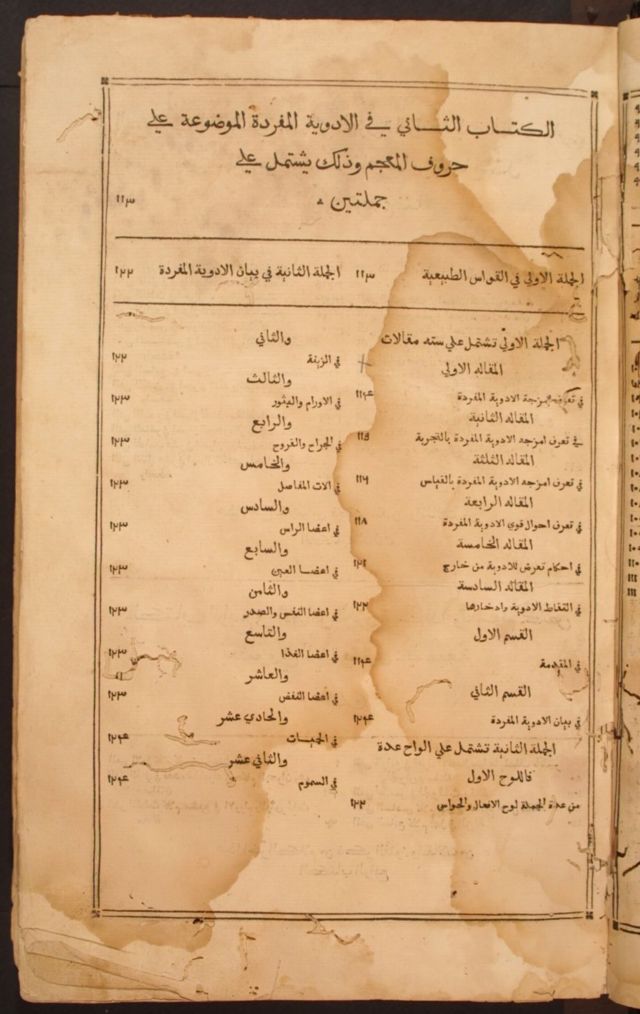 الكتاب الثاني في الادوية المفردة الموضوعة علي
حروف المعجم وذلك يشتمل علي
جملتين ١١٣
الجملة الاولي في القواس الطبيعية ١١٣
الجملة الثانية في بيان الادوية المفردة ١٢٢
الجملة الاولي تشتمل علي سته مقالات
المقاله الاولي
في تعرف امزجة الادوية المفردة ١١٤
المقاله الثانية
في تعرف امزجه الادوية المفردة بالتجربة ١١٥
المقاله الثلثة
في تعرف امزجه الادوية المفردة بالقياس ١١٦
المقاله الرابعة
في تعرف احوال قوي الادوية المفردة ١١٨
المقاله الخامسة
في احكام تعرض للادوية من خارج ١٢١
المقاله السادسة
في التقاط الادوية وادخارها ١٢٢
القسم الاول
في المقدمة ١١٤
القسم الثاني
في بيان الادوية المفردة ١٢٤
الجملة الثانية تشتمل علي الواح عدة
فاللوح الاول
من عدة الجملة لوح الافعال والخواس ١٢٢
والثاني
في الزينة ١٢٢
والثالث
في الاورام والبثور ١٢٣
والرابع
في الجراح والقروح ١٢٣
والخامس
في الات المفاصل ١٢٣
والسادس
في اعضا الراس ١٢٣
والسابع
في اعضا العين ١٢٣
والثامن
في اعضا النفس والصدر ١٢٣
والتاسع
في اعضا الغذا ١٢٣
والعاشر
في اعضا النفض ١٢٣
والحادي عشر
في الحميات ١٢٤
والثاني عشر
في السموم ١٢٤